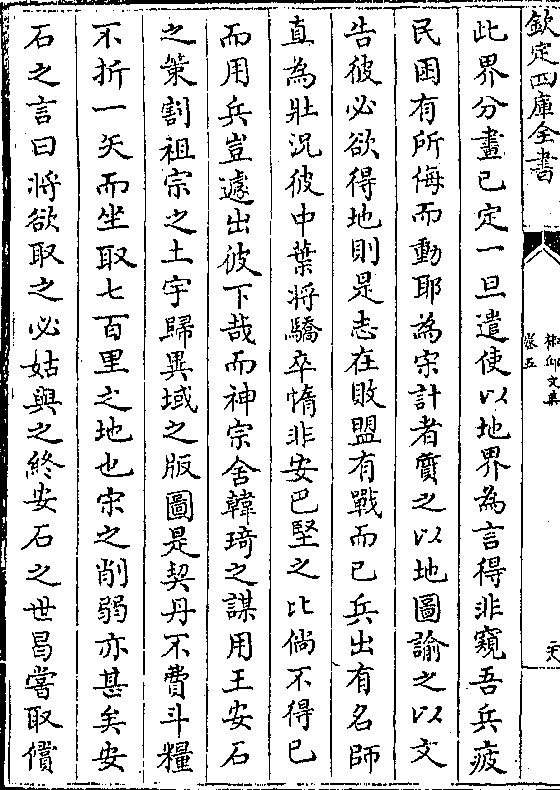 欽定四庫全書
卷五
此界分畫已定一旦遣使以地界為言得非窺吾兵疲
民困有所侮而動耶為宋計者質之以地圖諭之以文
告彼必欲得地則是志在敗盟有戰而已兵出有名師
直為壯況彼中葉將驕卒惰非安巴堅之比倘不得已
而用兵豈遽出彼下哉而神宗舍韓琦之謀用王安石
之策割祖宗之土宇歸異域之版圖是契丹不費斗糧
不折一矢而坐取七百里之地也宋之削弱亦甚矣安
石之言曰將欲取之必姑與之終安石之世曷嘗取償